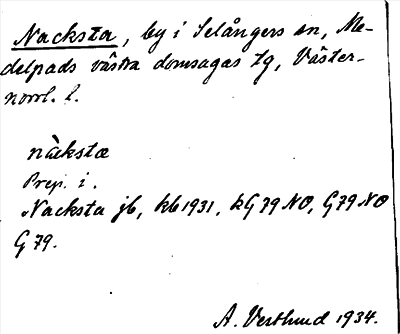 Nacksta, by i Selångers sn, Me-
delpads västra domsagas tg, Väster-
norrl. l.
nàkstæ
Prep. i.
Nacksta jb, kb 1931, kG 79 NO, G 79 NO
G 79.
A. Vestlund 1934.